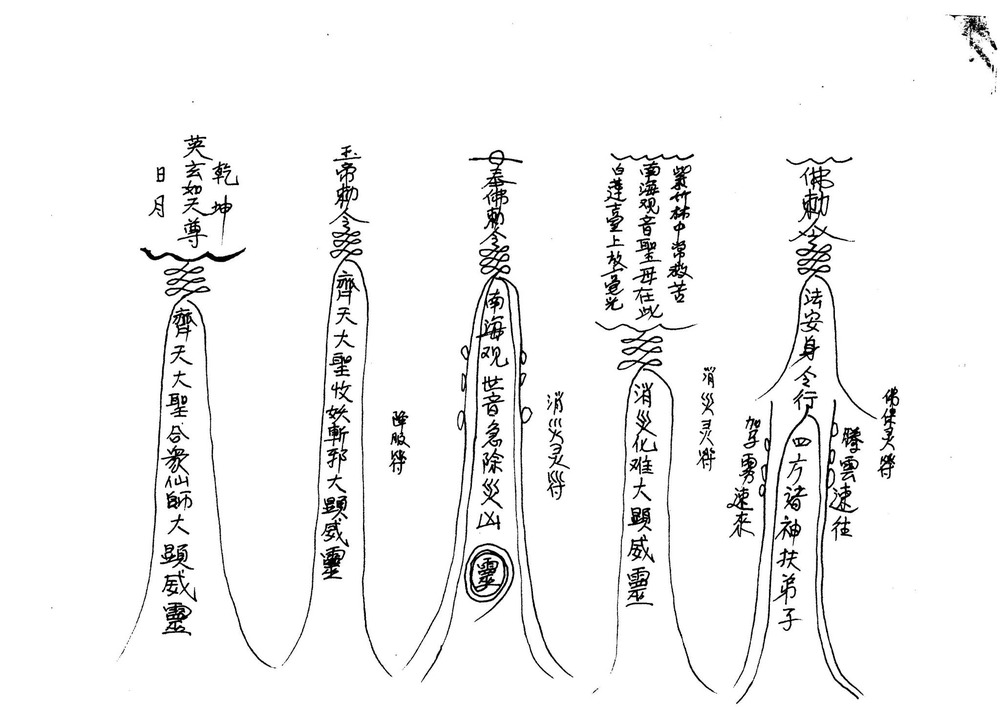 佛勅令
法安身令行
四方諸神扶弟子
騰雲速往
駕雾速来
佛保灵符
紫竹林中常救苦
南海观音聖母在此
白蓮臺上放毫光
消災化难大顯威靈
消災灵符
奉佛勅令
南海观世音急除災凶
靈
消災灵符
玉帝勅令
齊天大聖收妖斬邪大顯威靈
降服符
乾坤
英玄如天尊
日月
齊天大聖合衆仙師大顯威靈